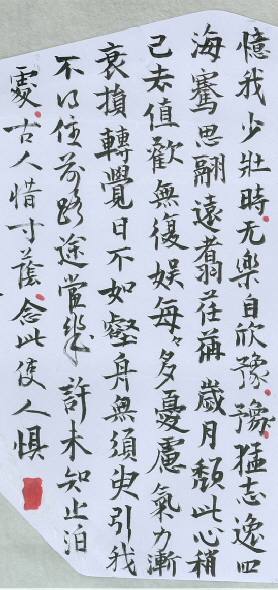 憶我少壯時无樂自欣豫豫猛志逸四
海騫思翮遠翥荏苒歲月頹此心稍
已去值歡無復娱每々多憂慮氣力漸
衰損轉覺日不如壑舟無須臾引我
不得住前路途當幾許未知止泊
處古人惜寸蔭念此使人懼